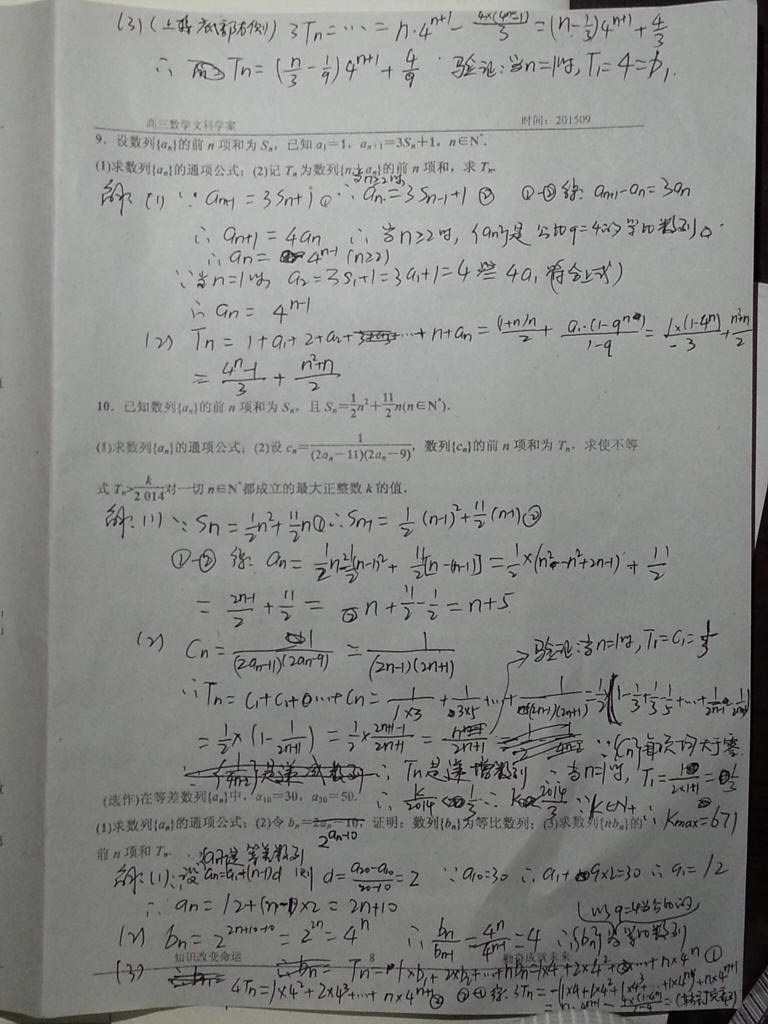 (3)(上接底部右侧) 3Tn=⋯⋯= n·4^(n+1) - 4×(4^n-1)/3 = (n-1/3)4^(n+1) + 4/3
∴ Tn = (n/3 - 1/9)4^(n+1) + 4/9 验证:当n=1时, T1=4=b1.
高三数学文科学案 时间:201509
9. 设数列{an}的前 n 项和为 Sn, 已知 a1=1, an+1=3Sn+1, n∈N*.
(1)求数列{an}的通项公式; (2)记 Tn 为数列{n+an}的前 n 项和, 求 Tn.
当n≥2时
解:(1) ∵ an+1 = 3Sn+1① ∴ an = 3Sn-1+1 ② ①-②得: an+1-an=3an
∴ an+1=4an ∴当n≥2时, {an}是公比q=4的等比数列.
∴ an= 4^(n-1) (n≥2)
∵当n=1时 a2=3S1+1=3a1+1=4 4a1 (符合上式)
∴ an = 4^(n-1)
(2) Tn = 1+a1+2+a2+⋯+n+an = (1+n)n/2 + a1·(1-q^n)/(1-q) = 1×(1-4^n)/-3 + (n²+n)/2
= (4^n-1)/3 + (n²+n)/2
10. 已知数列{an}的前 n 项和为 Sn, 且 Sn=1/2n²+11/2n(n∈N*).
(1)求数列{an}的通项公式; (2)设 cn=1/((2an-11)(2an-9)), 数列{cn}的前 n 项和为 Tn, 求使不等
式 Tn>k/2 014对一切 n∈N*都成立的最大正整数 k 的值.
解:(1) ∵ Sn = 1/2n²+11/2n① ∴ Sn-1 = 1/2(n-1)²+11/2(n-1)②
①-②得: an = 1/2n²-1/2(n-1)² + 11/2[n-(n-1)] = 1/2×(n²-n²+2n-1) + 11/2
= (2n-1)/2 + 11/2 = n+11/2-1/2 = n+5
(2) Cn = 1/((2an-11)(2an-9)) = 1/((2n-1)(2n+1)) 验证:当n=1时, T1=C1=1/3
∴Tn = C1+C2+⋯+Cn = 1/(1×3) + 1/(3×5) +⋯+ 1/((2n-1)(2n+1)) = 1/2(1-1/3+1/3-1/5+⋯+1/(2n-1)-1/(2n+1))
= 1/2×(1-1/(2n+1)) = 1/2×(2n+1-1)/(2n+1) = n/(2n+1) ∵{Cn}每项均大于零
∴ Tn是递增数列 ∴当n=1时, T1=1/(2×1+1)=1/3
∴ k/2014<1/3 ∴ k<2014/3 ∵k∈N+ ∴ kmax=671
(选作)在等差数列{an}中, a10=30, a20=50.
(1)求数列{an}的通项公式; (2)令 bn=2^(an-10), 证明: 数列{bn}为等比数列; (3)求数列{nbn}的
前 n 项和 Tn. {an}是等差数列
解:(1):设an=a1+(n-1)d 则 d=(a20-a10)/(20-10)=2 ∵a10=30 ∴a1+9×2=30 ∴a1=12
∴ an=12+(n-1)×2=2n+10
(2) bn=2^(2n+10-10)=2^(2n)=4^n ∴ bn/bn-1=4^n/4^(n-1)=4 ∴{bn}为等比数列
(3) Tn=1×b1+2×b2+⋯+nbn=1×4+2×4²+⋯+n×4^n ①
知识改变命运 8 勤奋成就未来
4Tn=1×4²+2×4³+⋯+n×4^(n+1)② ②-①得: 3Tn=-(1×4+1×4²+1×4³+⋯+1×4^n)+n×4^(n+1)